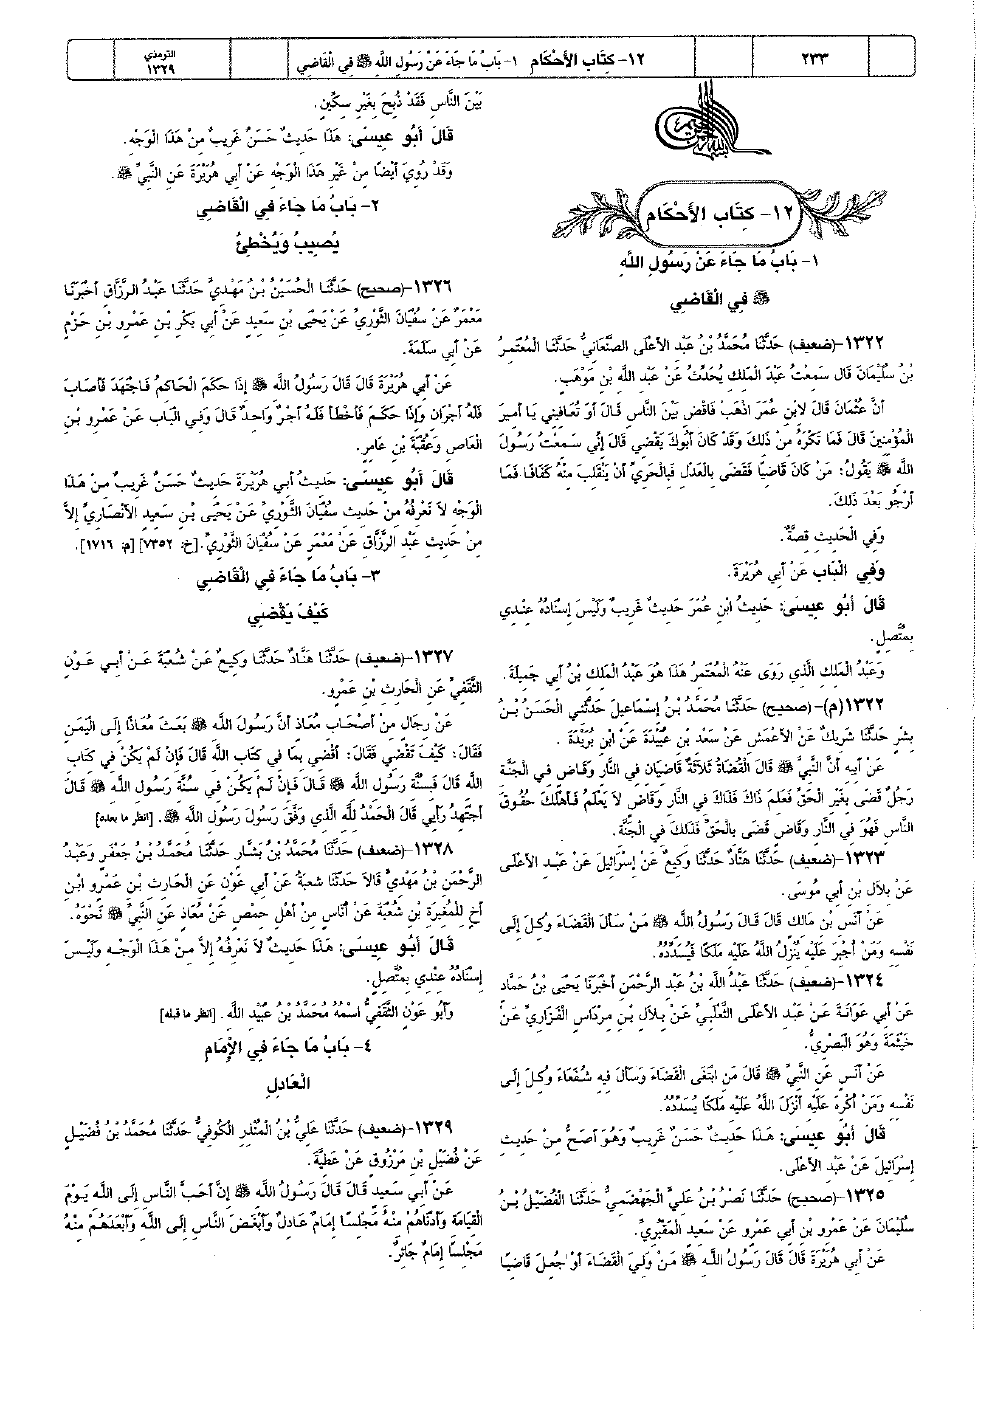 ٢٣٣
١٢- كِتَاب الأَحْكَام ١- بَابُ مَا جَاءَ عَنْ رَسُولِ اللَّهِ ﷺ فِي الْقَاضِي
الترمذي
١٣٢٩
١٢- كِتَاب الأَحْكَام
١- بَابُ مَا جَاءَ عَنْ رَسُولِ اللَّهِ
ﷺ فِي الْقَاضِي
١٣٢٢-(ضعيف) حَدَّثَنَا مُحَمَّدُ بْنُ عَبْدِ الأَعْلَى الصَّنْعَانِيُّ حَدَّثَنَا الْمُعْتَمِرُ
بْنُ سُلَيْمَانَ قَال سَمِعْتُ عَبْدَ الْمَلِكِ يُحَدِّثُ عَنْ عَبْدِ اللَّهِ بْنِ مَوْهَبٍ.
أَنَّ عُثْمَانَ قَالَ لاِبْنِ عُمَرَ اذْهَبْ فَاقْضِ بَيْنَ النَّاسِ قَالَ أَوَ تُعَافِينِي يَا أَمِيرَ
الْمُؤْمِنِينَ قَالَ فَمَا تَكْرَهُ مِنْ ذَلِكَ وَقَدْ كَانَ أَبُوكَ يَقْضِي قَالَ إِنِّي سَمِعْتُ رَسُولَ
اللَّهِ ﷺ يَقُولُ: مَنْ كَانَ قَاضِيًا فَقَضَى بِالْعَدْلِ فَبِالْحَرِيِّ أَنْ يَنْقَلِبَ مِنْهُ كَفَافًا فَمَا
أَرْجُو بَعْدَ ذَلِكَ.
وَفِي الْحَدِيثِ قِصَّةٌ.
وَفِي الْبَاب عَنْ أَبِي هُرَيْرَةَ.
قَالَ أَبُو عِيسَى: حَدِيثُ ابْنِ عُمَرَ حَدِيثٌ غَرِيبٌ وَلَيْسَ إِسْنَادُهُ عِنْدِي
بِمُتَّصِلٍ.
وَعَبْدُ الْمَلِكِ الَّذِي رَوَى عَنْهُ الْمُعْتَمِرُ هَذَا هُوَ عَبْدُ الْمَلِكِ بْنُ أَبِي جَمِيلَةَ.
١٣٢٢(م)-(صحيح) حَدَّثَنَا مُحَمَّدُ بْنُ إِسْمَاعِيلَ حَدَّثَنِي الْحَسَنُ بْنُ
بِشْرٍ حَدَّثَنَا شَرِيكٌ عَنْ الأَعْمَشِ عَنْ سَعْدِ بْنِ عُبَيْدَةَ عَنْ ابْنِ بُرَيْدَةَ.
عَنْ أَبِيهِ أَنَّ النَّبِيَّ ﷺ قَالَ الْقُضَاةُ ثَلاَثَةٌ قَاضِيَانِ فِي النَّارِ وَقَاضٍ فِي الْجَنَّةِ
رَجُلٌ قَضَى بِغَيْرِ الْحَقِّ فَعَلِمَ ذَاكَ فَذَاكَ فِي النَّارِ وَقَاضٍ لاَ يَعْلَمُ فَأَهْلَكَ حُقُوقَ
النَّاسِ فَهُوَ فِي النَّارِ وَقَاضٍ قَضَى بِالْحَقِّ فَذَلِكَ فِي الْجَنَّةِ.
١٣٢٣-(ضعيف) حَدَّثَنَا هَنَّادٌ حَدَّثَنَا وَكِيعٌ عَنْ إِسْرَائِيلَ عَنْ عَبْدِ الأَعْلَى
عَنْ بِلاَلِ بْنِ أَبِي مُوسَى.
عَنْ أَنَسِ بْنِ مَالِكٍ قَالَ قَالَ رَسُولُ اللَّهِ ﷺ مَنْ سَأَلَ الْقَضَاءَ وُكِلَ إِلَى
نَفْسِهِ وَمَنْ أُجْبِرَ عَلَيْهِ يُنْزِلُ اللَّهُ عَلَيْهِ مَلَكًا فَيُسَدِّدُهُ.
١٣٢٤-(ضعيف) حَدَّثَنَا عَبْدُ اللَّهِ بْنُ عَبْدِ الرَّحْمَنِ أَخْبَرَنَا يَحْيَى بْنُ حَمَّادٍ
عَنْ أَبِي عَوَانَةَ عَنْ عَبْدِ الأَعْلَى الثَّعْلَبِيِّ عَنْ بِلاَلِ بْنِ مِرْدَاسٍ الْفَزَارِيِّ عَنْ
خَيْثَمَةَ وَهُوَ الْبَصْرِيُّ.
عَنْ أَنَسٍ عَنْ النَّبِيِّ ﷺ قَالَ مَنِ ابْتَغَى الْقَضَاءَ وَسَأَلَ فِيهِ شُفَعَاءَ وُكِلَ إِلَى
نَفْسِهِ وَمَنْ أُكْرِهَ عَلَيْهِ أَنْزَلَ اللَّهُ عَلَيْهِ مَلَكًا يُسَدِّدُهُ.
قَالَ أَبُو عِيسَى: هَذَا حَدِيثٌ حَسَنٌ غَرِيبٌ وَهُوَ أَصَحُّ مِنْ حَدِيثِ
إِسْرَائِيلَ عَنْ عَبْدِ الأَعْلَى.
١٣٢٥-(صحيح) حَدَّثَنَا نَصْرُ بْنُ عَلِيٍّ الْجَهْضَمِيُّ حَدَّثَنَا الْفُضَيْلُ بْنُ
سُلَيْمَانَ عَنْ عَمْرِو بْنِ أَبِي عَمْرٍو عَنْ سَعِيدٍ الْمَقْبُرِيِّ.
عَنْ أَبِي هُرَيْرَةَ قَالَ قَالَ رَسُولُ اللَّهِ ﷺ مَنْ وَلِيَ الْقَضَاءَ أَوْ جُعِلَ قَاضِيًا
بَيْنَ النَّاسِ فَقَدْ ذُبِحَ بِغَيْرِ سِكِّينٍ.
قَالَ أَبُو عِيسَى: هَذَا حَدِيثٌ حَسَنٌ غَرِيبٌ مِنْ هَذَا الْوَجْهِ.
وَقَدْ رُوِيَ أَيْضًا مِنْ غَيْرِ هَذَا الْوَجْهِ عَنْ أَبِي هُرَيْرَةَ عَنِ النَّبِيِّ ﷺ.
٢- بَابُ مَا جَاءَ فِي الْقَاضِي
يُصِيبُ وَيُخْطِئُ
١٣٢٦-(صحيح) حَدَّثَنَا الْحُسَيْنُ بْنُ مَهْدِيٍّ حَدَّثَنَا عَبْدُ الرَّزَّاقِ أَخْبَرَنَا
مَعْمَرٌ عَنْ سُفْيَانَ الثَّوْرِيِّ عَنْ يَحْيَى بْنِ سَعِيدٍ عَنْ أَبِي بَكْرِ بْنِ عَمْرِو بْنِ حَزْمٍ
عَنْ أَبِي سَلَمَةَ.
عَنْ أَبِي هُرَيْرَةَ قَالَ قَالَ رَسُولُ اللَّهِ ﷺ إِذَا حَكَمَ الْحَاكِمُ فَاجْتَهَدَ فَأَصَابَ
فَلَهُ أَجْرَانِ وَإِذَا حَكَمَ فَأَخْطَأَ فَلَهُ أَجْرٌ وَاحِدٌ قَالَ وَفِي الْبَاب عَنْ عَمْرِو بْنِ
الْعَاصِ وَعُقْبَةَ بْنِ عَامِرٍ.
قَالَ أَبُو عِيسَى: حَدِيثُ أَبِي هُرَيْرَةَ حَدِيثٌ حَسَنٌ غَرِيبٌ مِنْ هَذَا
الْوَجْهِ لاَ نَعْرِفُهُ مِنْ حَدِيثِ سُفْيَانَ الثَّوْرِيِّ عَنْ يَحْيَى بْنِ سَعِيدٍ الأَنْصَارِيِّ إِلاَّ
مِنْ حَدِيثِ عَبْدِ الرَّزَّاقِ عَنْ مَعْمَرٍ عَنْ سُفْيَانَ الثَّوْرِيِّ.[خ: ٧٣٥٢] [م: ١٧١٦].
٣- بَابُ مَا جَاءَ فِي الْقَاضِي
كَيْفَ يَقْضِي
١٣٢٧-(ضعيف) حَدَّثَنَا هَنَّادٌ حَدَّثَنَا وَكِيعٌ عَنْ شُعْبَةَ عَنْ أَبِي عَوْنٍ
الثَّقَفِيِّ عَنِ الْحَارِثِ بْنِ عَمْرٍو.
عَنْ رِجَالٍ مِنْ أَصْحَابِ مُعَاذٍ أَنَّ رَسُولَ اللَّهِ ﷺ بَعَثَ مُعَاذًا إِلَى الْيَمَنِ
فَقَالَ: كَيْفَ تَقْضِي فَقَالَ: أَقْضِي بِمَا فِي كِتَابِ اللَّهِ قَالَ فَإِنْ لَمْ يَكُنْ فِي كِتَابِ
اللَّهِ قَالَ فَبِسُنَّةِ رَسُولِ اللَّهِ ﷺ قَالَ فَإِنْ لَمْ يَكُنْ فِي سُنَّةِ رَسُولِ اللَّهِ ﷺ قَالَ
أَجْتَهِدُ رَأْيِي قَالَ الْحَمْدُ لِلَّهِ الَّذِي وَفَّقَ رَسُولَ رَسُولِ اللَّهِ ﷺ. [انظر ما بعده]
١٣٢٨-(ضعيف) حَدَّثَنَا مُحَمَّدُ بْنُ بَشَّارٍ حَدَّثَنَا مُحَمَّدُ بْنُ جَعْفَرٍ وَعَبْدُ
الرَّحْمَنِ بْنُ مَهْدِيٍّ قَالاَ حَدَّثَنَا شُعْبَةُ عَنْ أَبِي عَوْنٍ عَنِ الْحَارِثِ بْنِ عَمْرٍو ابْنِ
أَخٍ لِلْمُغِيرَةِ بْنِ شُعْبَةَ عَنْ أُنَاسٍ مِنْ أَهْلِ حِمْصٍ عَنْ مُعَاذٍ عَنِ النَّبِيِّ ﷺ نَحْوَهُ.
قَالَ أَبُو عِيسَى: هَذَا حَدِيثٌ لاَ نَعْرِفُهُ إِلاَّ مِنْ هَذَا الْوَجْهِ وَلَيْسَ
إِسْنَادُهُ عِنْدِي بِمُتَّصِلٍ.
وَأَبُو عَوْنٍ الثَّقَفِيُّ اسْمُهُ مُحَمَّدُ بْنُ عُبَيْدِ اللَّهِ. [انظر ما قبله]
٤- بَابُ مَا جَاءَ فِي الإِمَامِ
الْعَادِلِ
١٣٢٩-(ضعيف) حَدَّثَنَا عَلِيُّ بْنُ الْمُنْذِرِ الْكُوفِيُّ حَدَّثَنَا مُحَمَّدُ بْنُ فُضَيْلٍ
عَنْ فُضَيْلِ بْنِ مَرْزُوقٍ عَنْ عَطِيَّةَ.
عَنْ أَبِي سَعِيدٍ قَالَ قَالَ رَسُولُ اللَّهِ ﷺ إِنَّ أَحَبَّ النَّاسِ إِلَى اللَّهِ يَوْمَ
الْقِيَامَةِ وَأَدْنَاهُمْ مِنْهُ مَجْلِسًا إِمَامٌ عَادِلٌ وَأَبْغَضَ النَّاسِ إِلَى اللَّهِ وَأَبْعَدَهُمْ مِنْهُ
مَجْلِسًا إِمَامٌ جَائِرٌ.